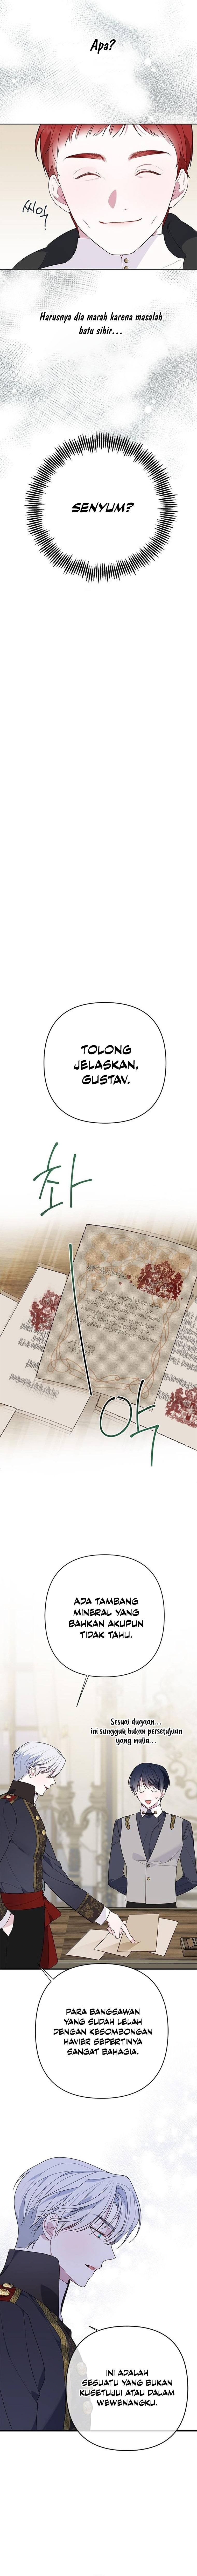 Apa?
씨익
Harusnya dia marah karena masalah
batu sihir...
SENYUM?
TOLONG
JELASKAN,
GUSTAV.
촤
악
ADA TAMBANG
MINERAL YANG
BAHKAN AKUPUN
TIDAK TAHU.
Sesuai dugaan...
ini sungguh bukan persetujuan
yang mulia...
PARA BANGSAWAN
YANG SUDAH LELAH
DENGAN KESOMBONGAN
HAVIER SEPERTINYA
SANGAT BAHAGIA.
INI ADALAH
SESUATU YANG BUKAN
KUSETUJUI ATAU DALAM
WEWENANGKU.